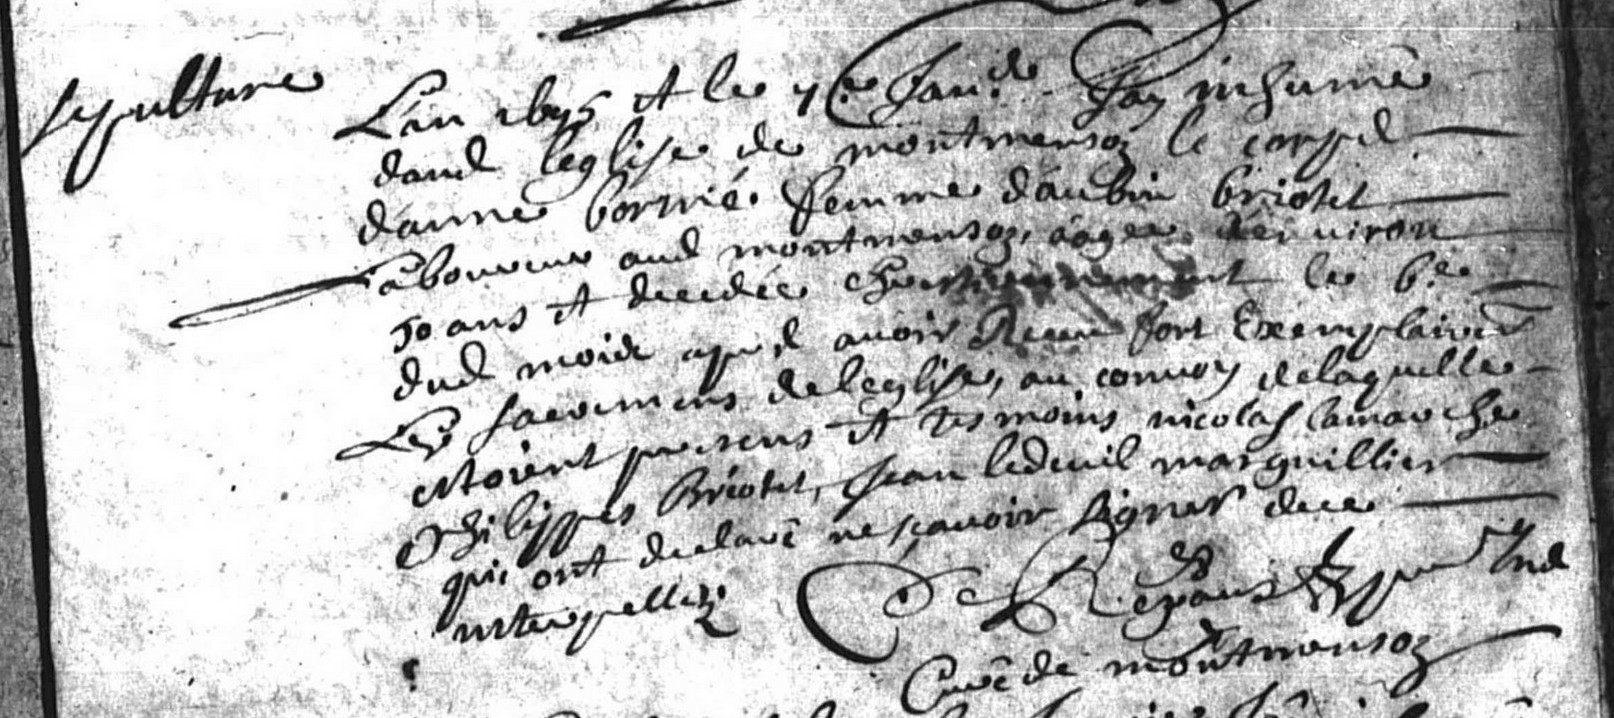 sepulture
L'an et le Jan. Jay inhumé
dans leglise de montmensoz le corps
d'anne borrné femme daubin briotet
laboureur aud montmensoz, aagée d'environ
50 ans et decedée chrestiennement le 6.e
dud mois apres avoir Receu fort Exemplairem
Les sacremens de leglise, au convoy delaquelle
estoient presens et tesmoins nicolas lamarche
Philippes Briotet, Jean ledeuil marguillier
qui ont declaré ne scavoir signer de ce
interpellez
Curé de montmensoz